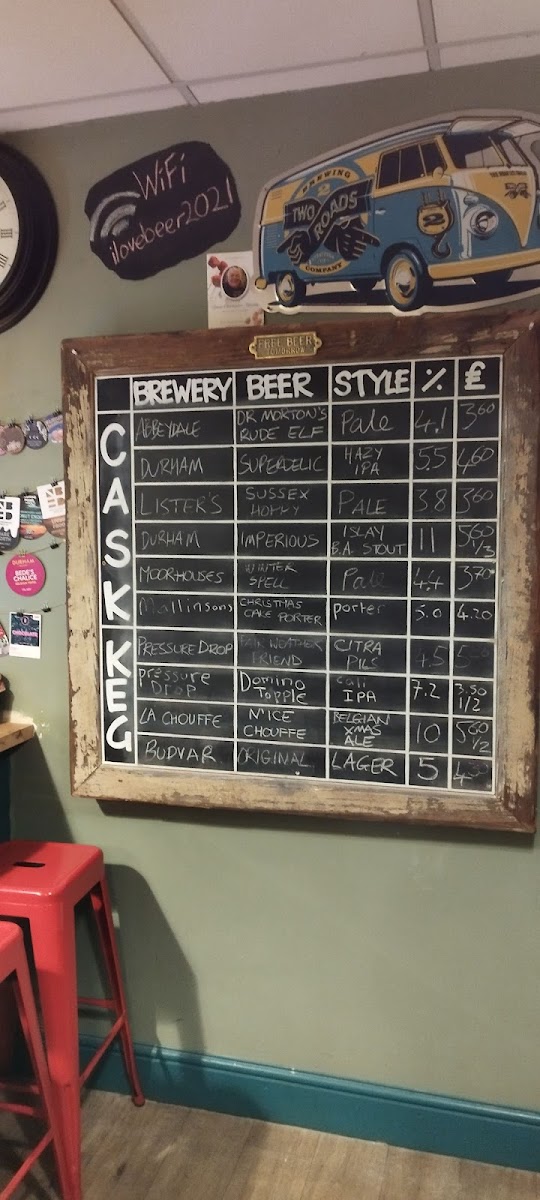 WiFi
ilovebeer2021
BREWING
2
TWO
ROADS
COMPANY
2
FREE BEER
TOMORROW
BREWERY BEER STYLE % £
CASK
ABBEYDALE DR MORTON'S RUDE ELF Pale 4.1 3.60
DURHAM SUPERDELIC HAZY IPA 5.5 4.60
LISTER'S SUSSEX HOPPY PALE 3.8 3.60
DURHAM IMPERIOUS ISLAY B.A. STOUT 11 5.60 1/3
MOORHOUSES WINTER SPELL Pale 4.4 3.70
Mallinsons CHRISTMAS CAKE PORTER porter 5.0 4.20
KEG
PRESSURE DROP FAIR WEATHER FRIEND CITRA PILS 4.5
pressure DROP Domino Topple cali IPA 7.2 3.50 1/2
LA CHOUFFE N'ICE CHOUFFE BELGIAN XMAS ALE 10 5.60 1/2
BUDVAR ORIGINAL LAGER 5
DURHAM
BEDE'S
CHALICE